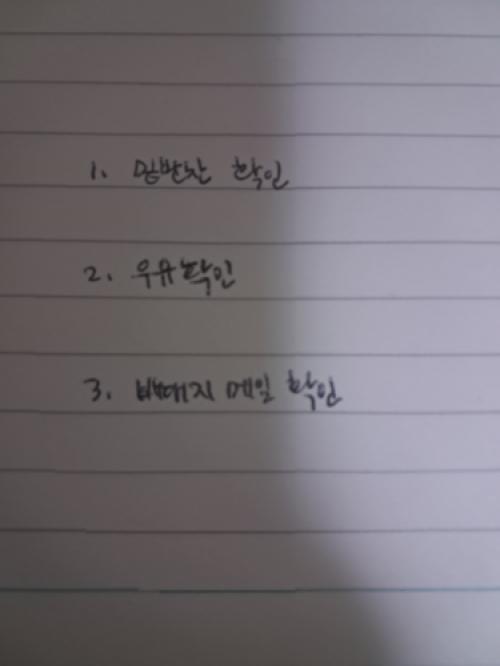 1. 밑반찬 확인
2. 우유확인
3. 바데지 메일 확인